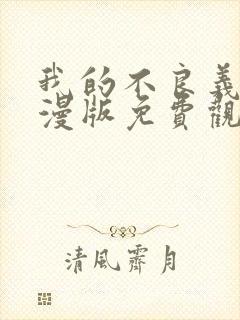 我的不良義
漫版免費觀
清風霽月